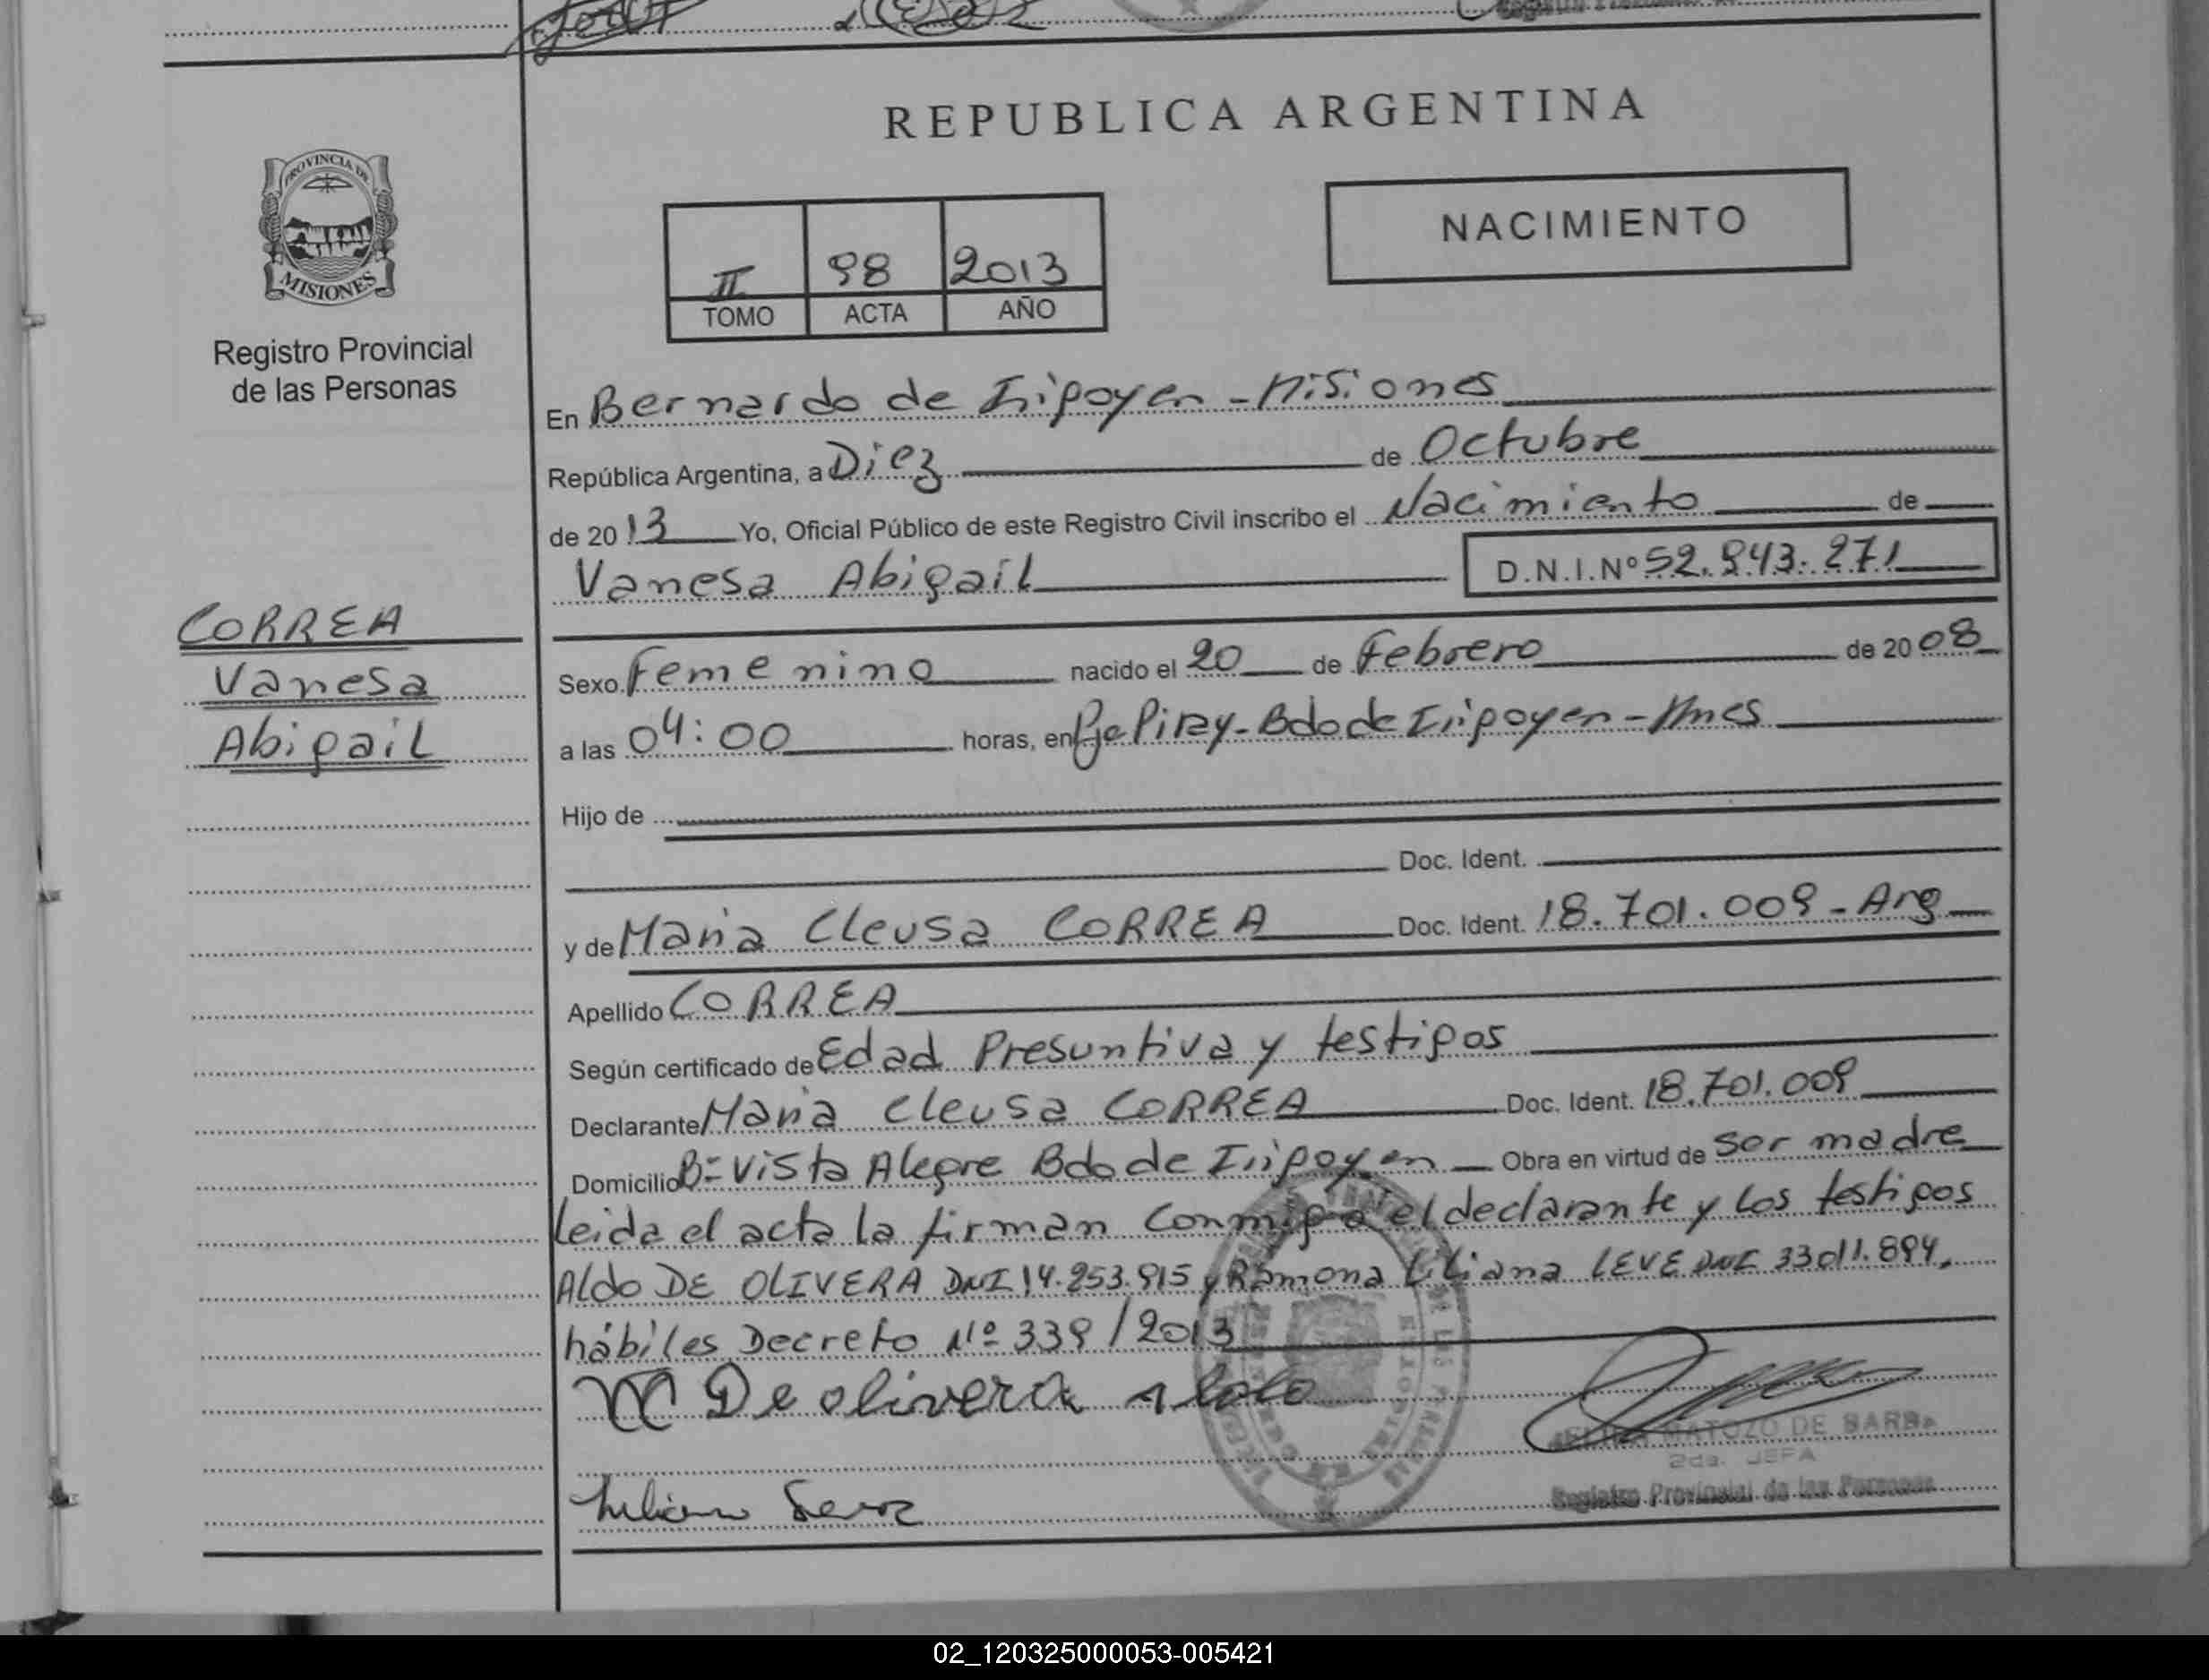 REPUBLICA ARGENTINA
PROVINCIA DE
MISIONES
Registro Provincial
de las Personas
NACIMIENTO
II 98 2013
TOMO ACTA AÑO
En Bernardo de Irigoyen - Misiones
República Argentina, a Diez de Octubre
de 2013 Yo, Oficial Público de este Registro Civil inscribo el Nacimiento de
Vanesa Abigail D.N.I.Nº 52.943.271
CORREA
Vanesa
Abigail
Sexo Femenino nacido el 20 de Febrero de 2008
a las 04:00 horas, en Pje Piray - Bdo de Irigoyen - Mnes
Hijo de
Doc. Ident.
y de Maria Cleusa CORREA Doc. Ident. 18.701.009 - Arg
Apellido CORREA
Según certificado de Edad Presuntiva y testigos
Declarante Maria Cleusa CORREA Doc. Ident. 18.701.009
Domicilio Bº Vista Alegre Bdo de Irigoyen Obra en virtud de ser madre
leida el acta la firman conmigo el declarante y los testigos
Aldo DE OLIVERA DNI 14.253.915 y Ramona Liliana LEVE DNI 33011.894,
hábiles Decreto Nº 339/2013
De olivera Aldo
MATOZO DE BARB
2da. JEFA
Registro Provincial de las Personas
02_120325000053-005421